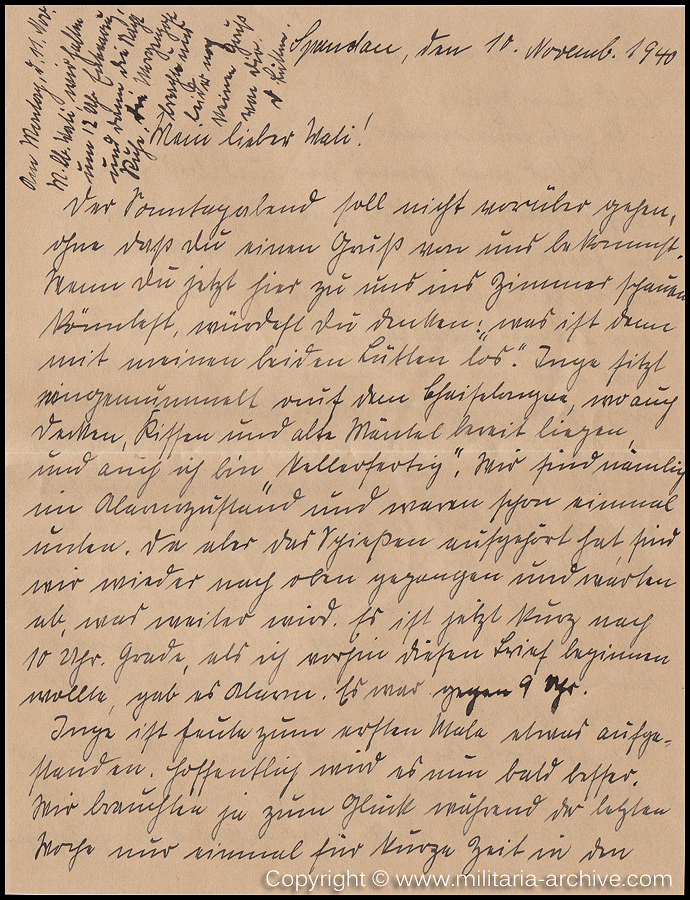 Am Montag, d. 11. Nov.
M. lb. Wali, wir hatten
um 12 Uhr Entwarnung
und dann die Nacht
Ruh.
Spandau, den 10. Novemb. 1940
Mein lieber Wali!
Der Sonntagabend soll nicht vorüber gehen,
ohne daß Du einen Gruß von uns bekommst.
Wenn Du jetzt hier zu uns ins Zimmer schauen
könntest, würdest Du denken: „was ist denn
mit meinen beiden Lütten los“. Inge sitzt
eingemummelt auf dem Chaiselongue, wo auch
Decken, Kissen und alte Mäntel bereit liegen,
und auch ich bin „kellerfertig“. Wir sind nämlich
im Alarmzustand und waren schon einmal
unten. Da aber das Schießen aufgehört hat, sind
wir wieder nach oben gegangen und warten
ab, was weiter wird. Es ist jetzt kurz nach
10 Uhr. Grade, als ich vorhin diesen Brief beginnen
wollte, gab es Alarm. Es war gegen 9 Uhr.
Inge ist heute zum ersten Male etwas aufge-
standen. Hoffentlich wird es nun bald besser.
Wir brauchten ja zum Glück während der letzten
Woche nur einmal für kurze Zeit in den
Copyright © www.militaria-archive.com